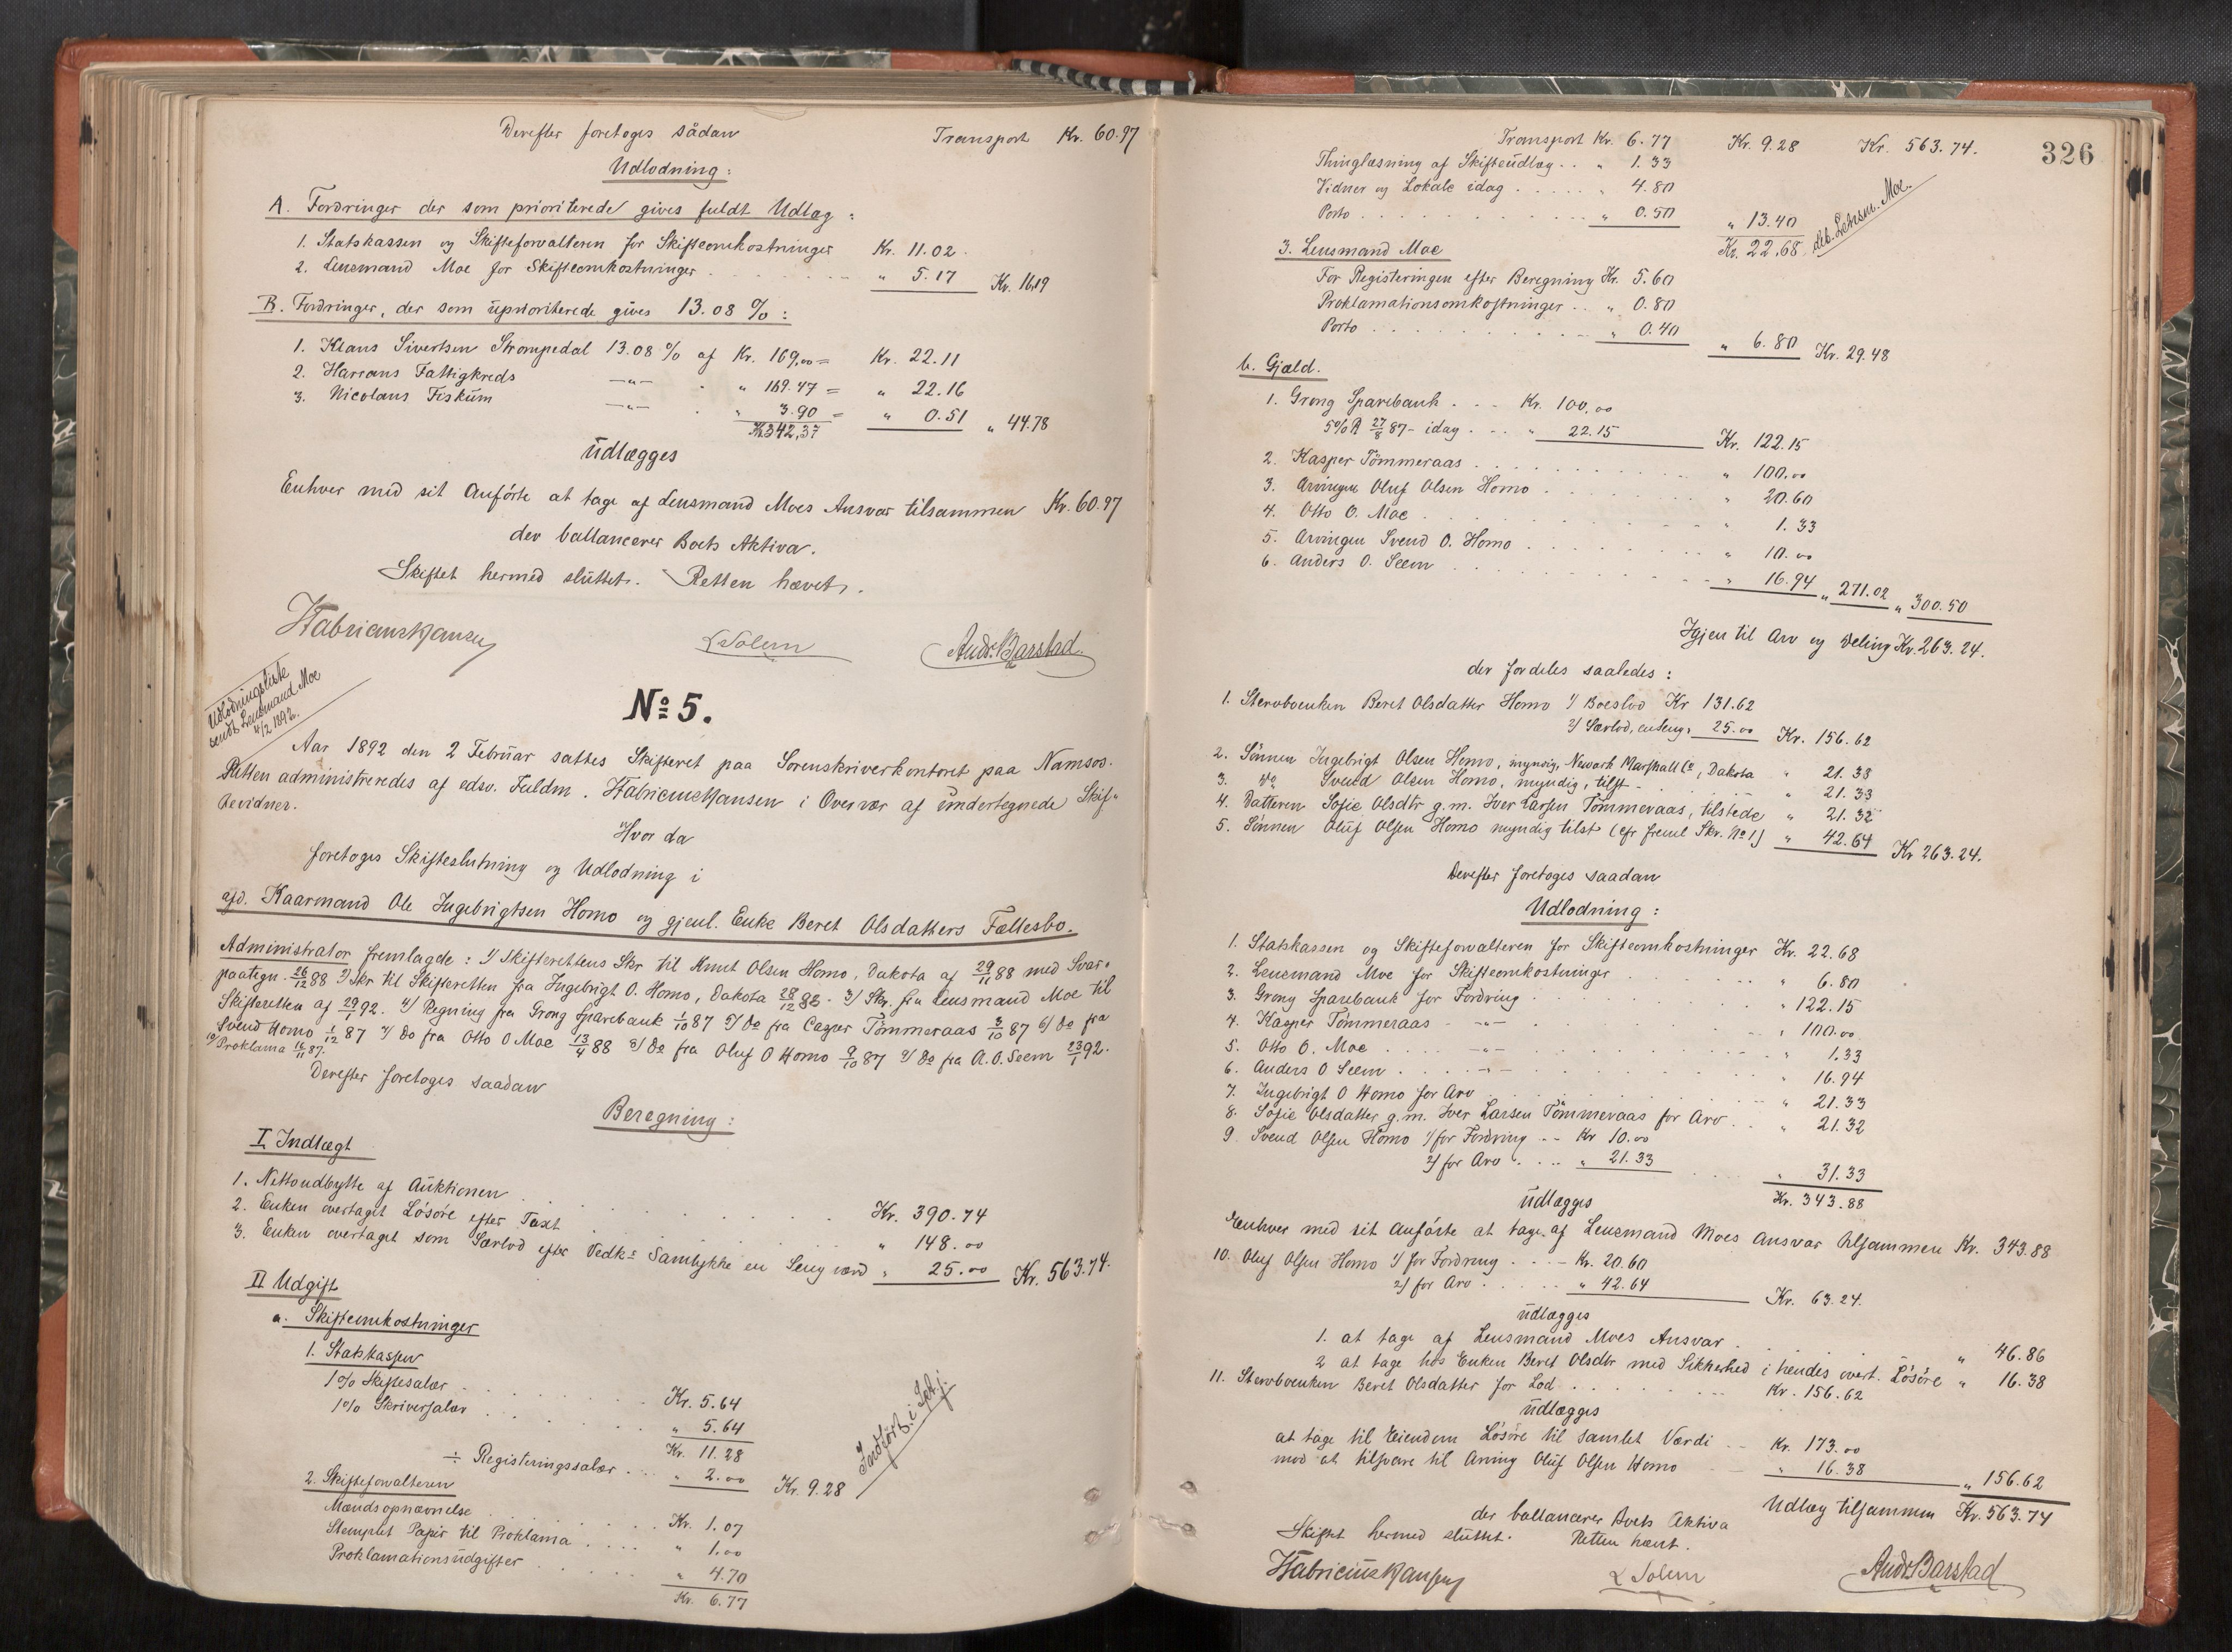 Derefter foretoges sådan Transport Kr. 60.97
Udlodning:
A. Fordringer der som prioriterede gives fuldt Udlæg:
1. Statskassen og Skifteforvalteren for Skifteomkostninger Kr. 11.02
2. Lensmand Moe for Skifteomkostninger " 5.17 Kr. 16.19
B. Fordringer, der som uprioriterede gives 13.08 %:
1. Klaus Sivertsen Strompedal 13.08 % af Kr. 169,00 = Kr. 22.11
2. Harrans Fattigkreds —"— " 169.47 = " 22.16
3. Nicolaus Fiskum —"— " 3.90 = " 0.51 " 44.78
Kr. 342,37
Udlægges
Enhver med sit Anførte at tage af Lensmand Moes Ansvar tilsammen Kr. 60.97
der ballancerer Boets Aktiva.
Skiftet hermed sluttet. Retten hævet.
HFabriciusHansen L Solem Andr. Barstad.
Udlodningsliste
sendt Lensmand Moe
4/2 1892.
No 5.
Aar 1892 den 2 Februar sattes Skifteret paa Sorenskriverkontoret paa Namsos.
Retten administreredes af edsv. Fuldm. HFabriciusHansen i Overvær af undertegnede Skif-
tevidner.
Hvor da
foretoges Skifteslutning og Udlodning i
afd. Kaarmand Ole Ingebrigtsen Homo og gjenl. Enke Beret Olsdatters Fællesbo.
Administrator fremlagde: 1/ Skifterettens Skr til Knut Olsen Homo, Dakota af 29/11 88 med Svar-
paategn. 26/12 88 2/ Skr til Skifteretten fra Ingebrigt O. Homo, Dakota 28/12 88. 3/ Skr. fra Lensmand Moe til
Skifteretten af 29/1 92. 4/ Regning fra Grong Sparebank 1/10 87 5/ do fra Casper Tømmeraas 3/10 87 6/ do fra
Svend Homo 1/12 87 7/ do fra Otto O Moe 13/4 88 8/ do fra Oluf O Homo 9/10 87 9/ do fra A. O. Seem 23/1 92.
10/ Proklama 16/11 87.
Derefter foretoges saadan
Beregning:
I Indtægt
1. Nettoudbytte af Auktionen Kr. 390.74
2. Enken overtaget Løsøre efter Taxt " 148.00
3. Enken overtaget som Særlod efter Vedk: Samtykke en Seng værd " 25.00 Kr. 563.74.
II Udgift
a. Skifteomkostninger
1. Statskassen
1% Skiftesalær Kr. 5.64
1% Skriversalær " 5.64
Kr. 11.28
÷ Registeringssalær " 2.00 Kr. 9.28
Indført i
2. Skifteforvalteren
Mandsopnævnelse Kr. 1.07
Stemplet Papir til Proklama " 1.00
Proklamationsudgifter " 4.70
Kr. 6.77
326
Transport Kr. 6.77 Kr. 9.28 Kr. 563.74.
Thinglæsning af Skifteudlæg " 1.33
Vidner og Lokale idag " 4.80
Porto " 0.50 " 13.40
Kr. 22,68
deb. Lehsm. Moe.
3. Lensmand Moe
For Registeringen efter Beregning Kr. 5.60
Proklamationsomkostninger " 0.80
Porto " 0.40 " 6.80 Kr. 29.48
b. Gjæld.
1. Grong Sparebank Kr. 100,00
5% R 27/8 87 - idag " 22.15 Kr. 122.15
2. Kasper Tømmeraas " 100.00
3. Arvingen Oluf Olsen Homo " 20.60
4. Otto O. Moe " 1.33
5. Arvingen Svend O. Homo " 10.00
6. Anders O. Seem " 16.94 " 271.02 " 300.50
Igjen til Arv og Deling Kr. 263.24.
der fordeles saaledes:
1. Stervboenken Beret Olsdatter Homo 1/ Boeslod Kr 131.62
2/ Særlod, en Seng " 25.00 Kr. 156.62
2. Sønnen Ingebrigt Olsen Homo, myndig, Newark Marshall Co, Dakota " 21.33
3. do Svend Olsen Homo, myndig, tilst. " 21.33
4. Datteren Sofie Olsdtr g. m. Iver Larsen Tømmeraas, tilstede " 21.32
5. Sønnen Oluf Olsen Homo myndig tilst (cfr freml Skr. No 1) " 42.64 Kr 263.24.
Derefter foretoges saadan
Udlodning:
1. Statskassen og Skifteforvalteren for Skifteomkostninger Kr. 22.68
2. Lensmand Moe for Skifteomkostninger " 6.80
3. Grong Sparebank for Fordring " 122.15
4. Kasper Tømmeraas —"— " 100.00
5. Otto O. Moe —"— " 1.33
6. Anders O Seem —"— " 16.94
7. Ingebrigt O Homo for Arv " 21.33
8. Sofie Olsdatter g. m. Iver Larsen Tømmeraas for Arv " 21.32
9. Svend Olsen Homo 1/ for Fordring Kr 10.00
2/ for Arv " 21.33 " 31.33
Kr. 343.88
Udlægges
Enhver med sit Anførte at tage af Lensmand Moes Ansvar tilsammen Kr. 343.88
10. Oluf Olsen Homo 1/ for Fordring Kr. 20.60
2/ for Arv " 42.64 Kr. 63.24.
Udlægges
1. at tage af Lensmand Moes Ansvar " 46.86
2 at tage hos Enken Beret Olsdtr med Sikkerhed i hendes overt. Løsøre " 16.38
11. Stervboenken Beret Olsdatter for Lod Kr. 156.62
Udlægges
at tage til Eiendom Løsøre til samlet Værdi Kr. 173.00
mod at tilsvare til Arving Oluf Olsen Homo " 16.38 " 156.62
Udlæg tilsammen Kr. 563.74
der ballancerer Boets Aktiva
Skiftet hermed sluttet. Retten hævet.
HFabriciusHansen L Solem Andr. Barstad